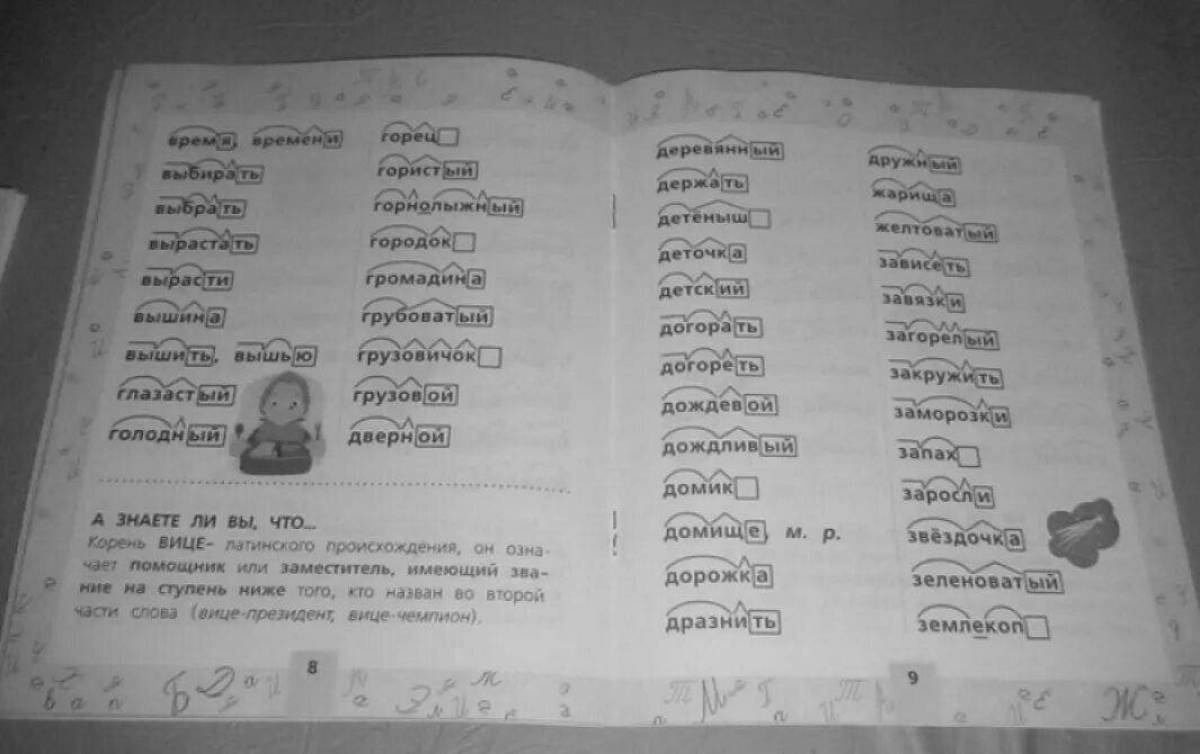 время, времени
выбирать
выбрать
вырастать
вырасти
вышина
вышить, вышью
глазастый
голодный
горец
гористый
горнолыжный
городок
громадина
грубоватый
грузовичок
грузовой
дверной
А ЗНАЕТЕ ЛИ ВЫ, ЧТО...
Корень ВИЦЕ– латинского происхождения, он озна-
чает помощник или заместитель, имеющий зва-
ние на ступень ниже того, кто назван во второй
части слова (вице-президент, вице-чемпион).
8
деревянный
держать
детёныш
деточка
детский
догорать
догореть
дождевой
дождливый
домик
домище, м. р.
дорожка
дразнить
дружный
жарища
желтоватый
зависеть
завязки
загорелый
закружить
заморозки
запах
заросли
звёздочка
зеленоватый
землекоп
9